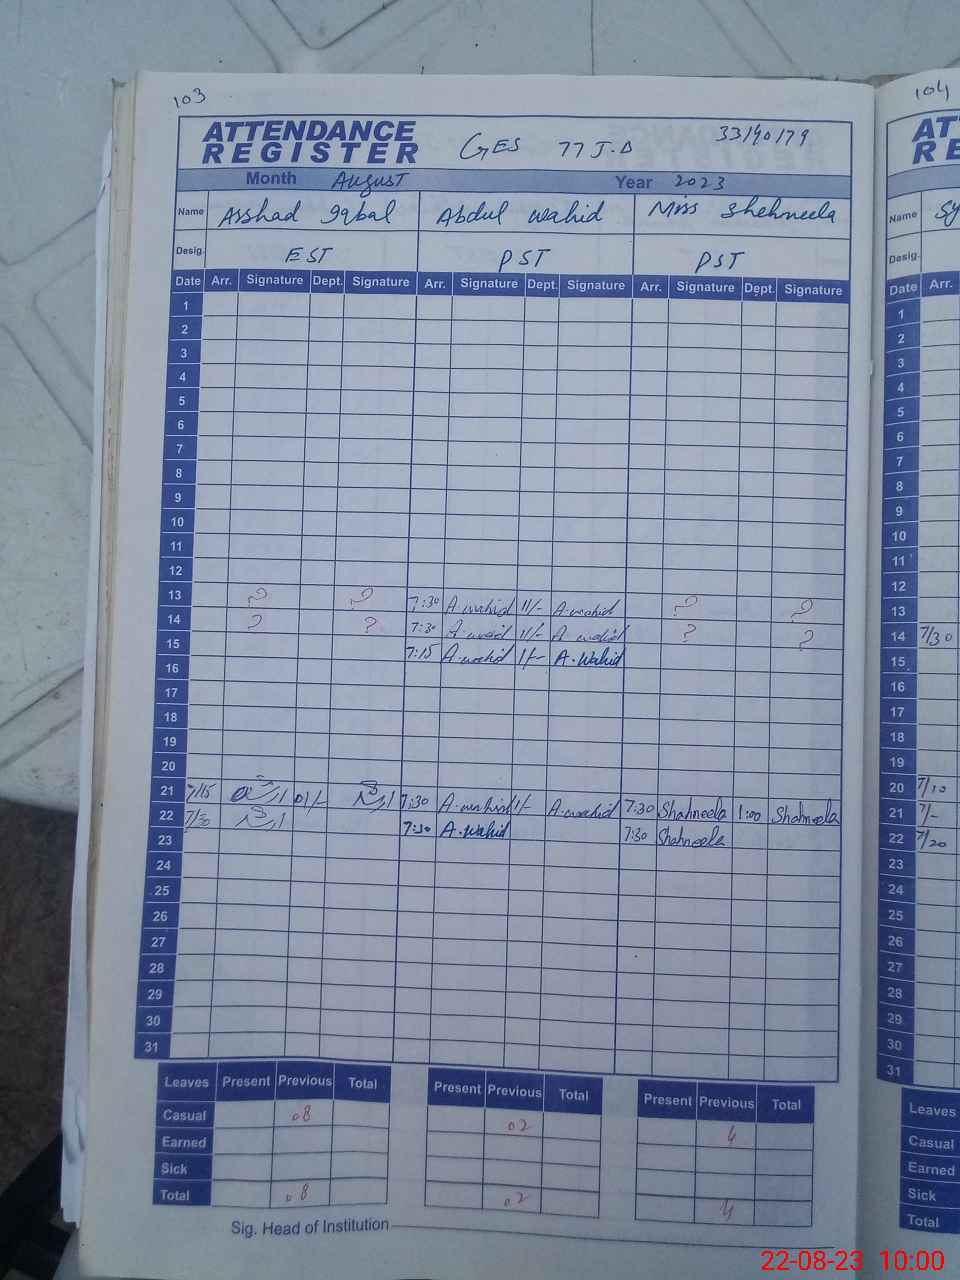 103
104
ATTENDANCE REGISTER GES 77 J.B 33/40/79
Month August Year 2023
Name Asshad Iqbal Abdul wahid Miss Shehneela
Desig. EST PST PST
Date Arr. Signature Dept. Signature Arr. Signature Dept. Signature Arr. Signature Dept. Signature
1
2
3
4
5
6
7
8
9
10
11
12
13 ? ? 7:30 A.wahid 11/- A.wahid ? ?
14 ? ? 7:30 A.wahid 11/- A.wahid ? ?
15 7:15 A.wahid 1/- A.Wahid
16
17
18
19
20
21 7/15 01/- 7:30 A.wahid 1/- A.wahid 7:30 Shahneela 1:00 Shahneela
22 7/30 7:30 A.wahid 7:30 Shahneela
23
24
25
26
27
28
29
30
31
Leaves Present Previous Total Present Previous Total Present Previous Total
Casual .8 .2 4
Earned
Sick
Total .8 .2 4
Sig. Head of Institution
AT
RE
Name
Desig.
Date Arr.
1
2
3
4
5
6
7
8
9
10
11
12
13
14 7/30
15
16
17
18
19
20 7/10
21 7/-
22 7/20
23
24
25
26
27
28
29
30
31
Leaves
Casual
Earned
Sick
Total
22-08-23 10:00